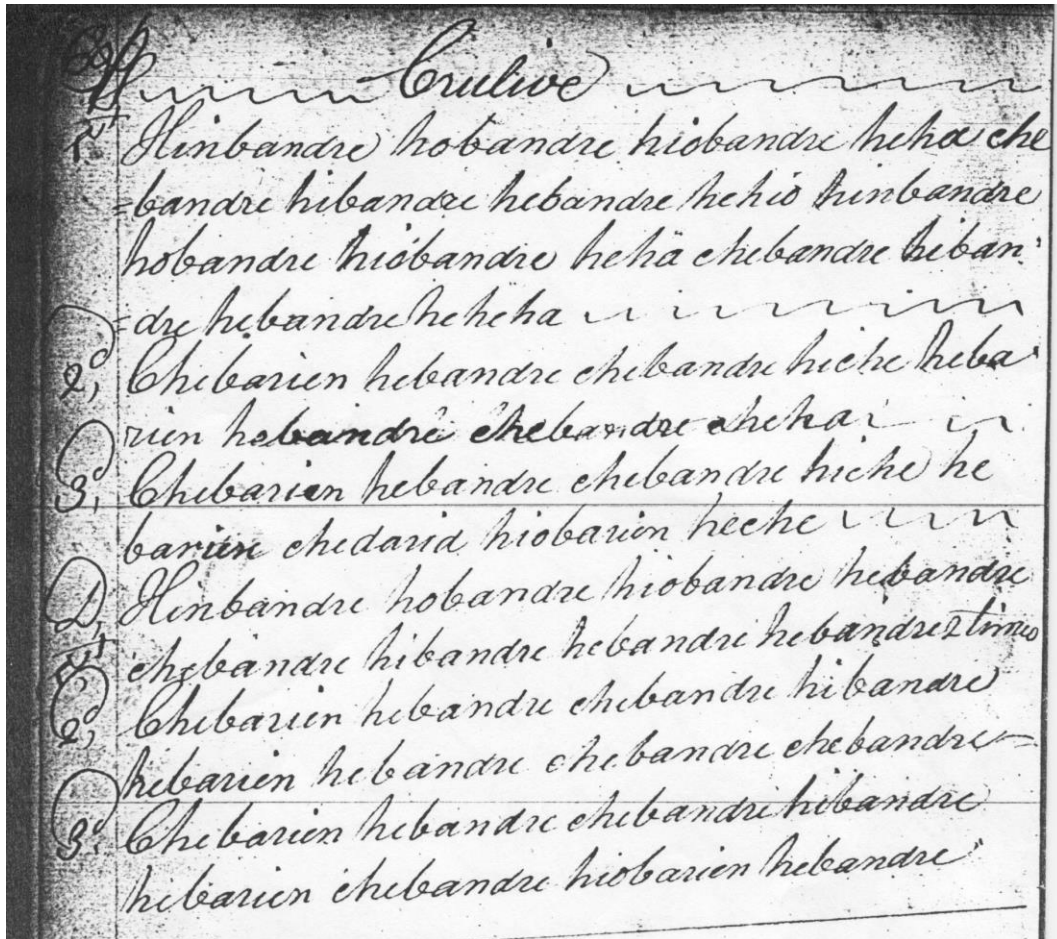 Crulive
1st Hinbandre hobandre hiobandre heha che
=bandre hibandre hebandre hehio hinbandre
hobandre hiobandre hehä chebandre hiban=
=dre hebandre heheha
2d, Chebarien hebandre chebandre hiche heba
rien hebandre chebandre cheha
3d, Chebarien hebandre chebandre hiche he
barien chedarid hiobarien heche
D, 1st Hinbandre hobandre hiobandre hebandre
chebandre hibandre hebandre hebandre 2 times
2d, Chebarien hebandre chebandre hibandre
hebarien hebandre chebandre chebandre
3d Chebarien hebandre chebandre hibandre
hebarien chebandre hiobarien hebandre